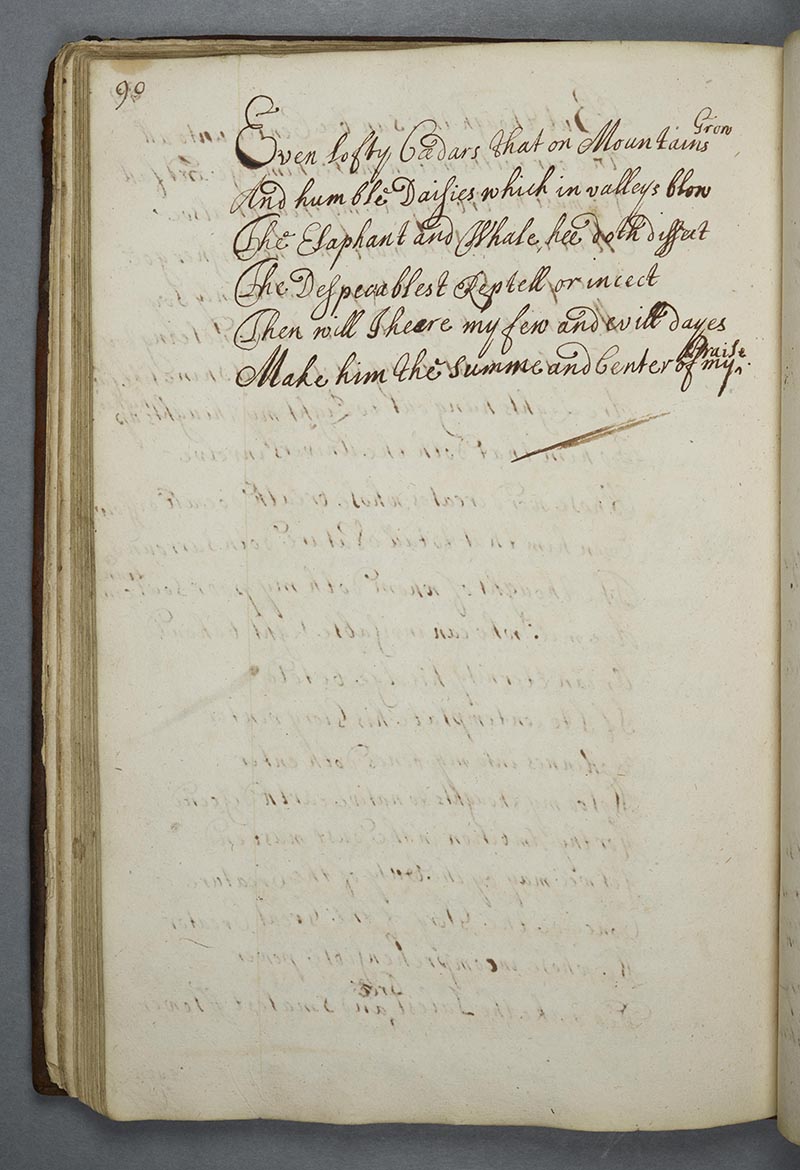 90
Even lofty Cædars that on Mountains Grow
And humble Daisies which in valleys blow
The Elaphant and Whale hee doth dissect
The Despecablest Reptell or incect
Then will I heere my few and evill dayes
Make him the summe and Center of my Praise.